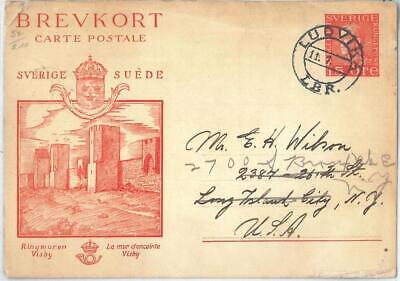 BREVKORT
CARTE POSTALE
SVERIGE SUÈDE
SVERIGE
LUDVIKA
LBR.
ÖRE
Mr. E. H. Wilson
2700
2387 - 26th St.
Long Island City, N.Y.
U.S.A.
Ringmuren
Visby
La mur d'enceinte
Visby